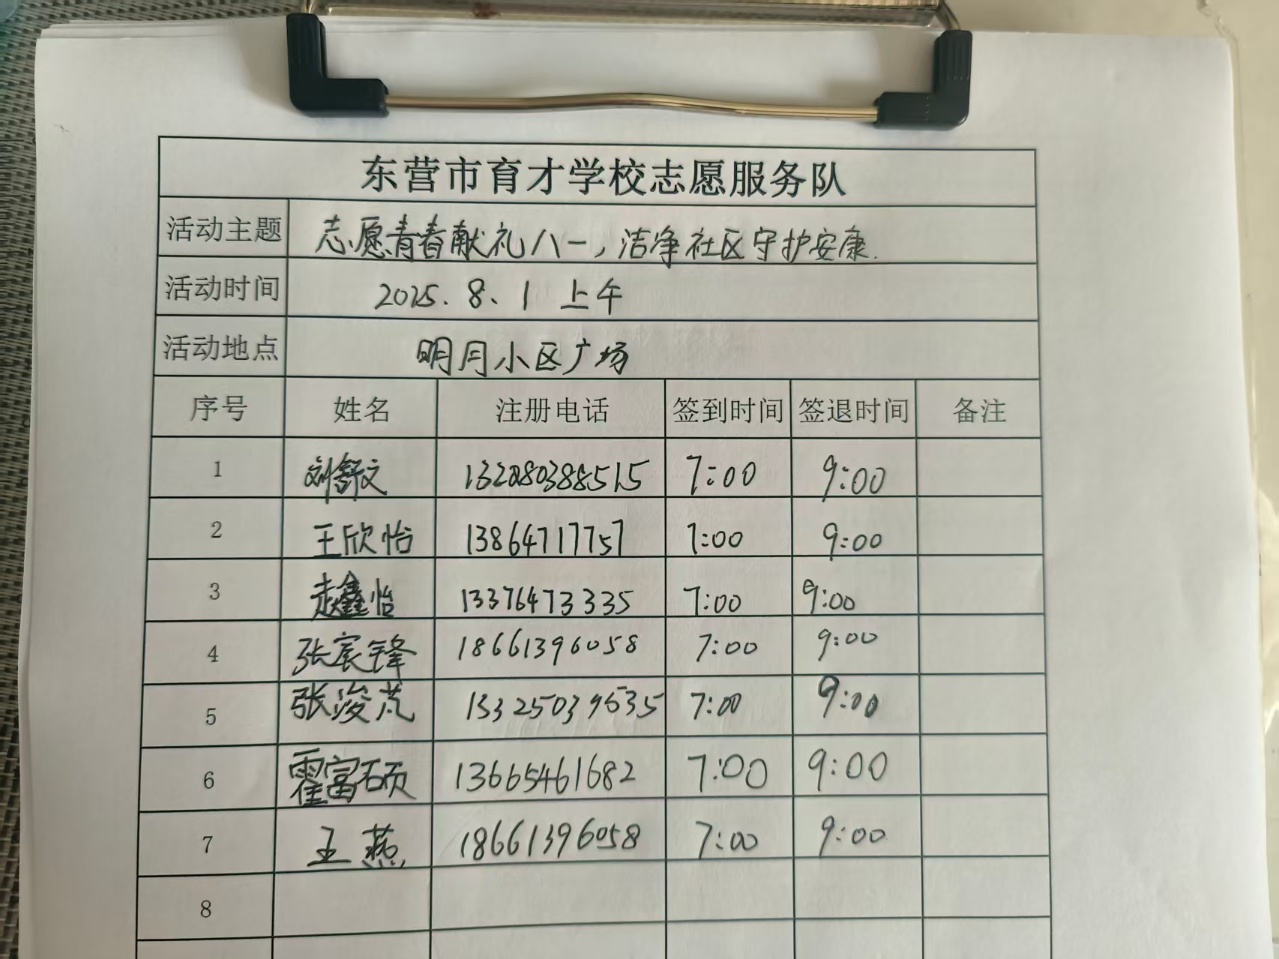 东营市育才学校志愿服务队
活动主题 志愿青春献礼八一,洁净社区守护安康.
活动时间 2025.8.1 上午
活动地点 明月小区广场
序号 姓名 注册电话 签到时间 签退时间 备注
1 刘舒文 13280388515 7:00 9:00
2 王欣怡 13864717757 7:00 9:00
3 赵鑫怡 13376473335 7:00 9:00
4 张宸锋 18661396058 7:00 9:00
5 张浚芃 13325039635 7:00 9:00
6 霍富硕 13665461682 7:00 9:00
7 王燕 18661396058 7:00 9:00
8